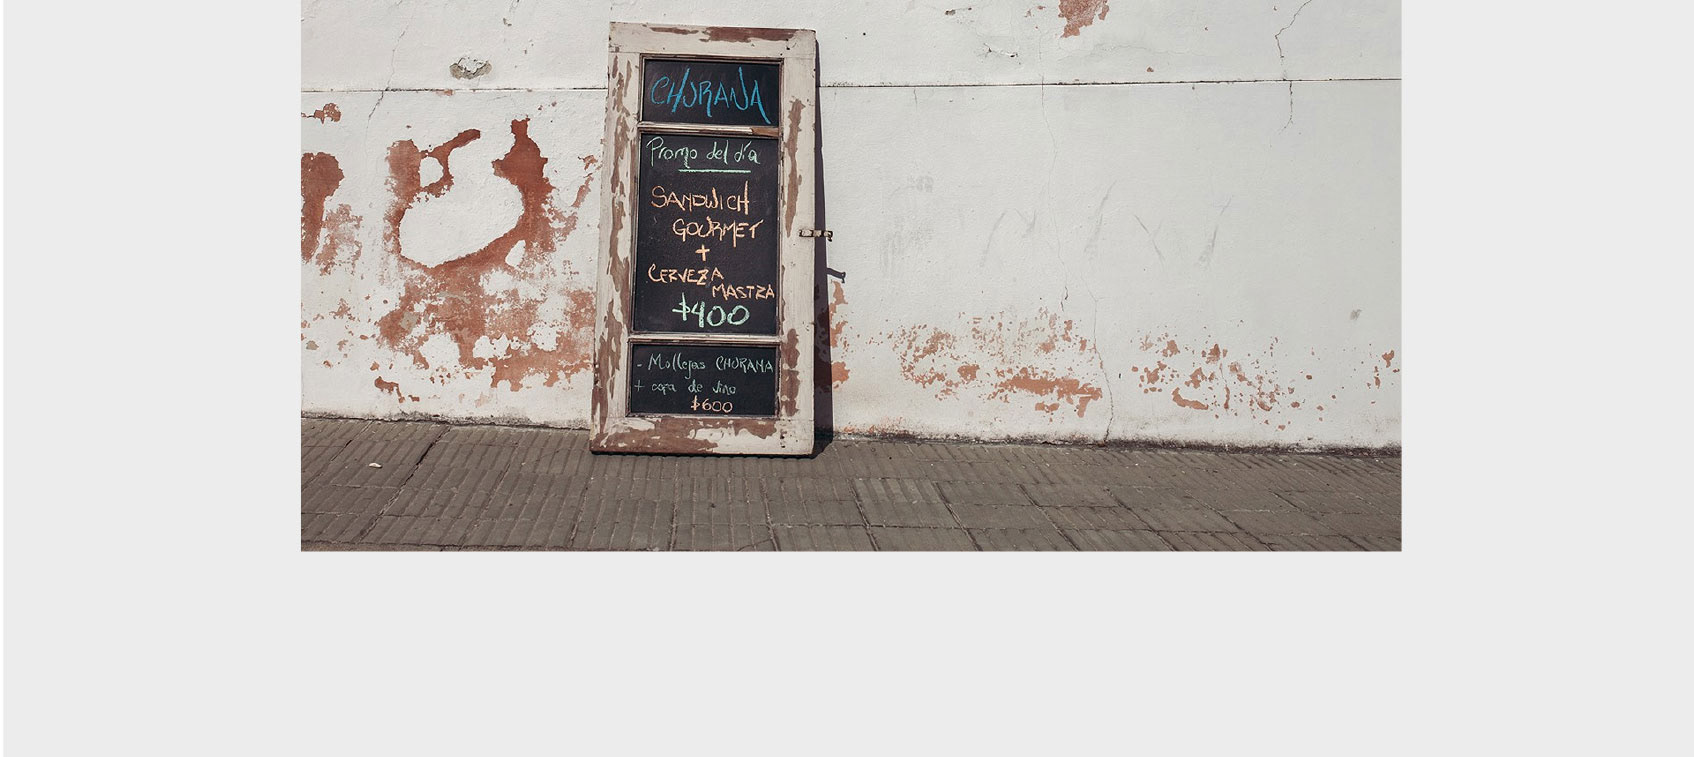 CHURANA
Promo del día
SANDWICH
GOURMET
+
CERVEZA
MASTRA
$400
- Mollejas CHURANA
+ copa de vino
$600